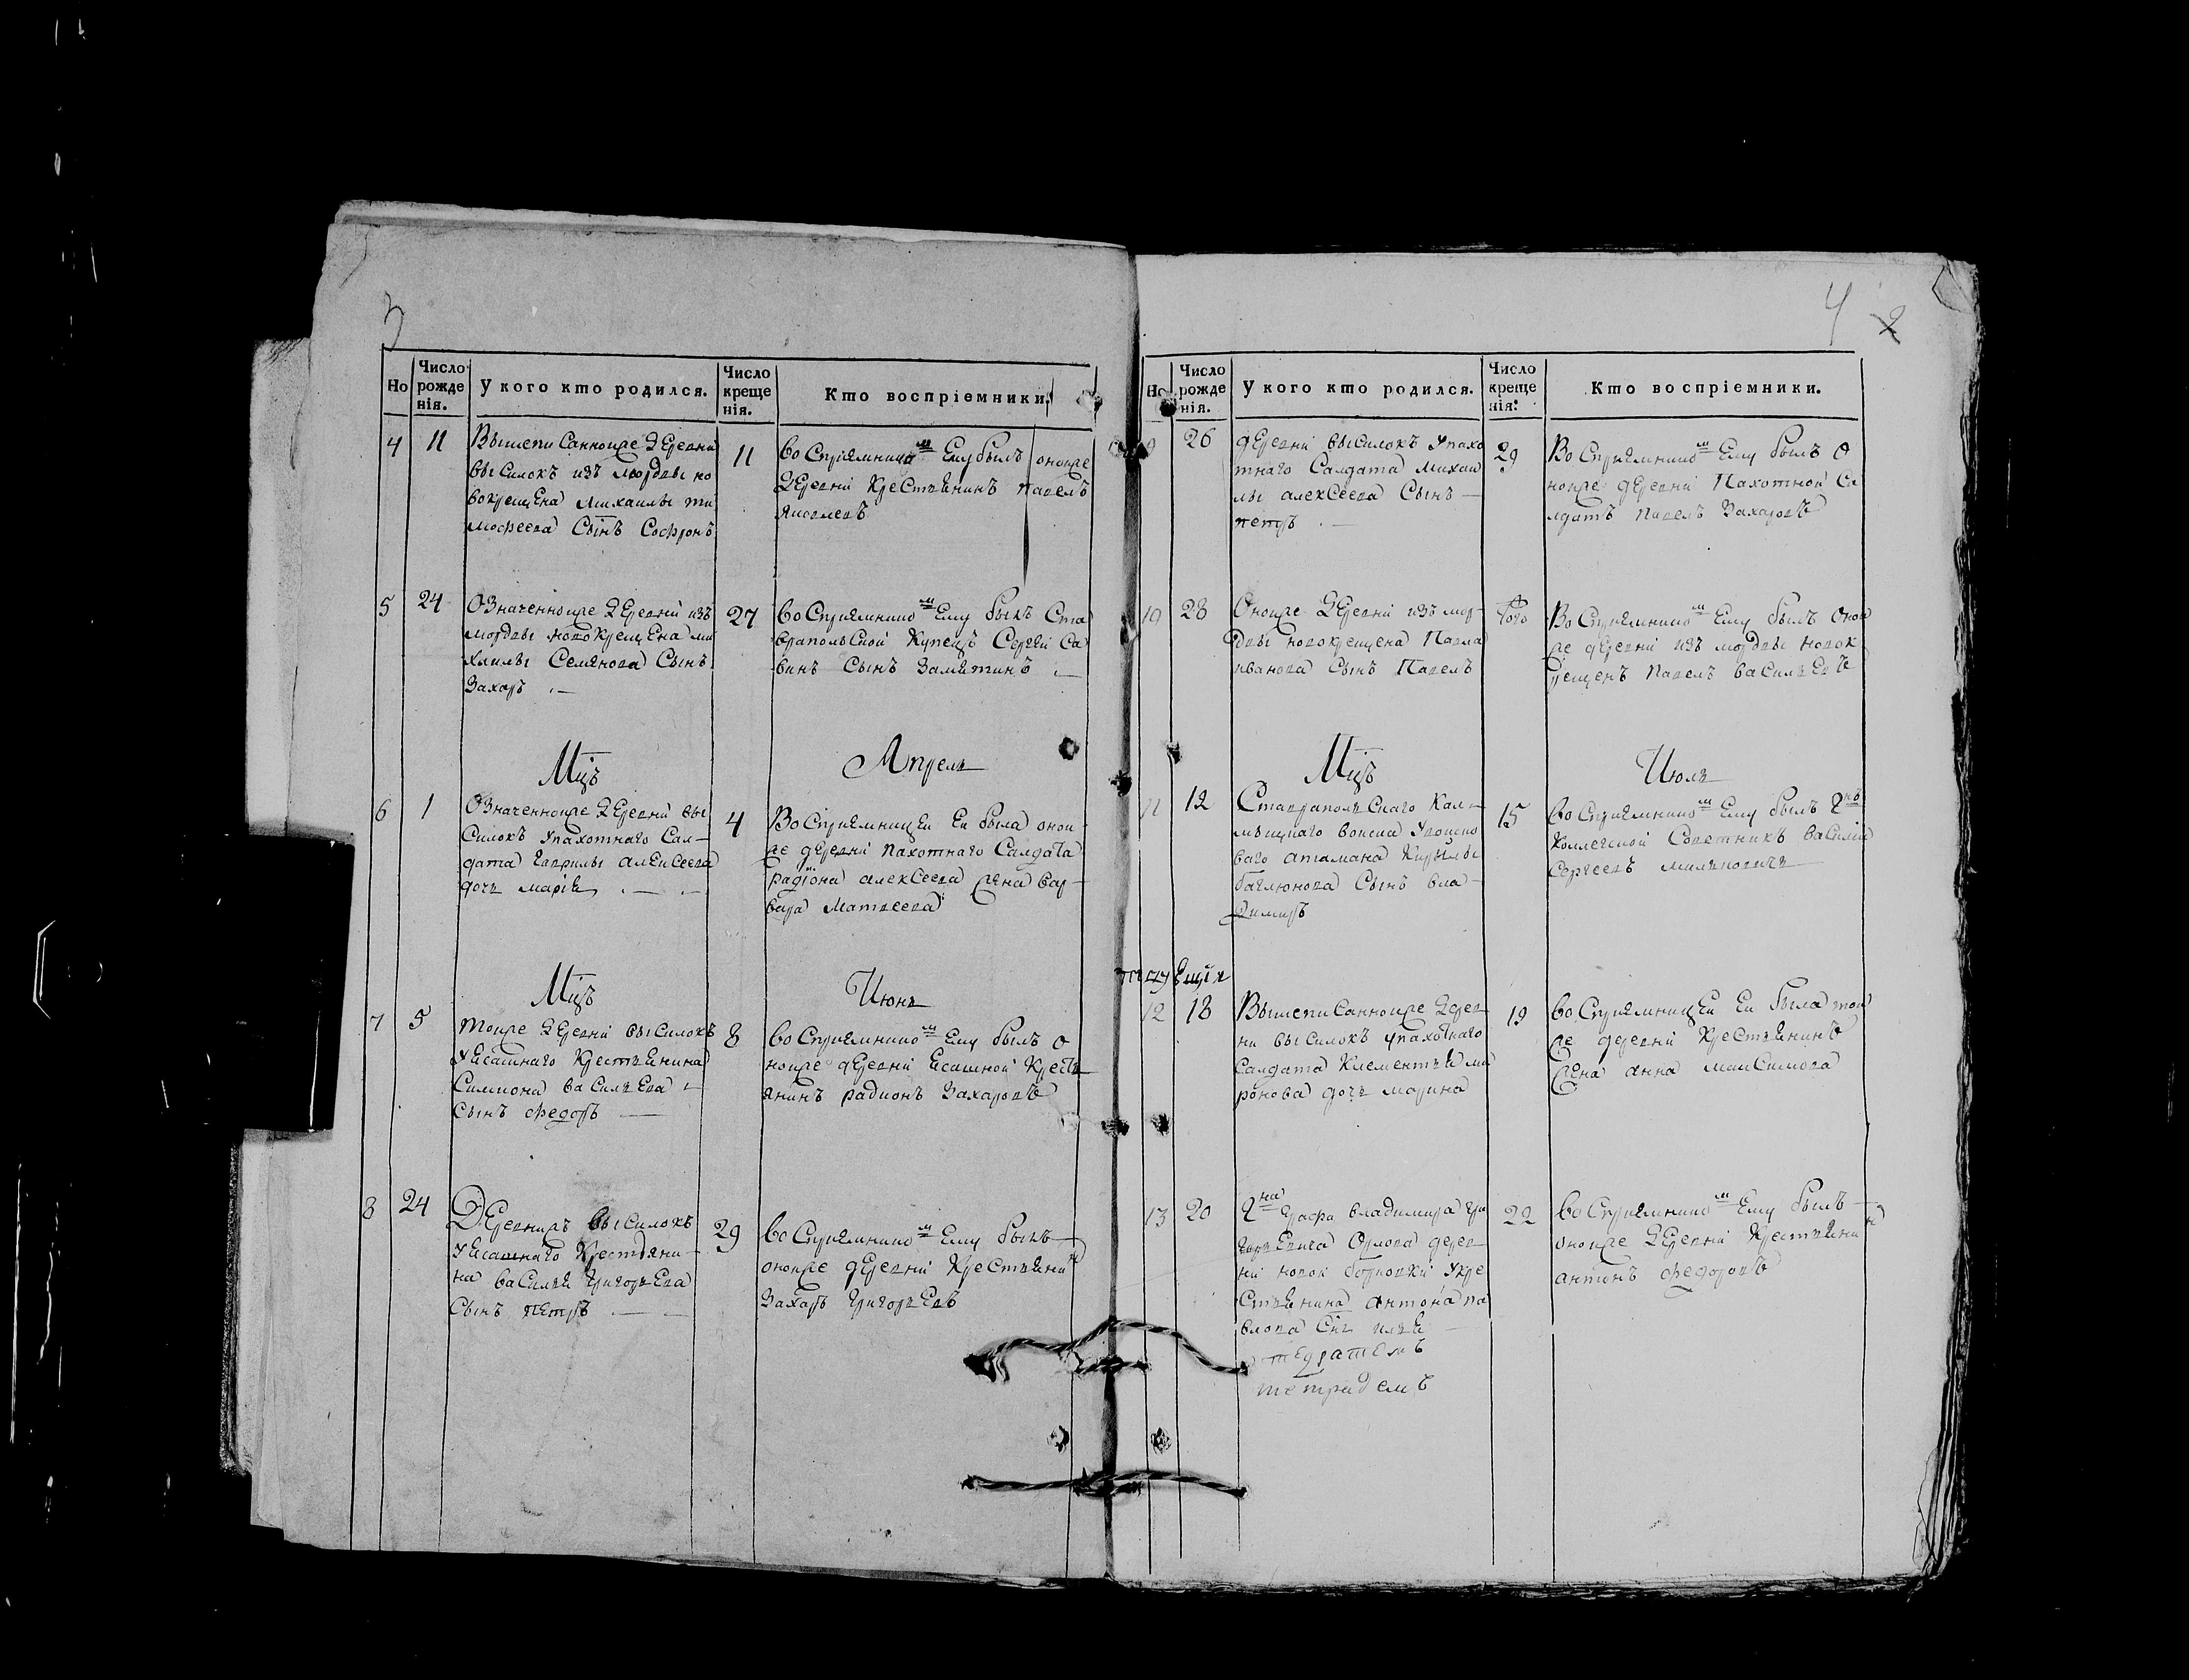 3
Но
Число рожде нія.
У кого кто родился.
Число креще нія.
Кто воспріемники.
4
11
Вышепи Санноиже Деревни
высилокъ изъ мордвы но
вокрещена михаилы ти
мофеева Сынъ Софронъ
11
воСприемнико м Ему былъ оноиже
Деревни КреСтьянинъ павелъ
яковлевъ
5
24
Означенноиже Деревни изъ
мордвы новокрещена ми
хаилы Семенова Сынъ
Захаръ
27
воСприемнико м Ему былъ Ста
врапольСкой Купецъ Сергей Са
винъ Сынъ Замятинъ
Мцъ
Апрель
6
1
Означенноиже Деревни вы
Силокъ упахотнаго Сал-
дата гаврилы алексеева
дочь мария
4
ВоСприемницеи Еи была онои
же деревни пахотнаго Салдата
радиона алекСеева жена вар-
вара Матвеева
Мцъ
Июнь
7
5
тоиже Деревни высилокъ
уясашнаго Крестьянина
Симиона ваСильева
Сынъ федоръ
8
воСприемнико м Ему былъ о
ноиже деревни ясашной Кресть
янинъ радионъ Захаровъ
8
24
Деревниже высилокъ
уясашнаго Крестьяни-
на ваСилья григорьева
Сынъ петръ
29
воСприемнико м Ему былъ
оноиже деревни КреСтьянинъ
Захаръ григорьевъ
4 2
Но
Число рожде нія.
У кого кто родился.
Число креще нія.
Кто воспріемники.
9
26
деревни высилокъ упахо
тнаго Салдата михаи
лы алекСеева Сынъ
петръ
29
ВоСприемнико м Ему былъ о
ноиже деревни Пахотной Са
лдатъ павелъ Захаровъ
10
28
Оноиже Деревни изъ мор-
двы новокрещена Павла
иванова Сынъ Павелъ
того
ВоСприемнико м Ему былъ онои
же деревни изъ мордвы новок
рещенъ павелъ ваСильевъ
Мцъ
Июль
11
12
СтаврапольСкаго Кал-
мыцкаго воиска увоиско
ваго атамана Кирилы
баглюнова Сынъ вла-
димиръ
15
воСприемнико м Ему былъ Гнъ
Коллегской Советникъ василий
Сергеевъ милькович
12
18
ВышепиСанноиже Дерев
ни высилокъ упахотнаго
Салдата Клементья ми
ронова дочь марина
19
воСприемницеи Еи была тои
же деревни КреСтьянинъ
жена анна макСимова
13
20
Гна графа владимира гри
горьевича Орлова дерев
ни новой боровки Укре
Стьянина антона па
влова Снъ илья
22
воСприемнико м Ему былъ
оноиже Деревни Крестьянинъ
антонъ федоровъ
тетрадемъ